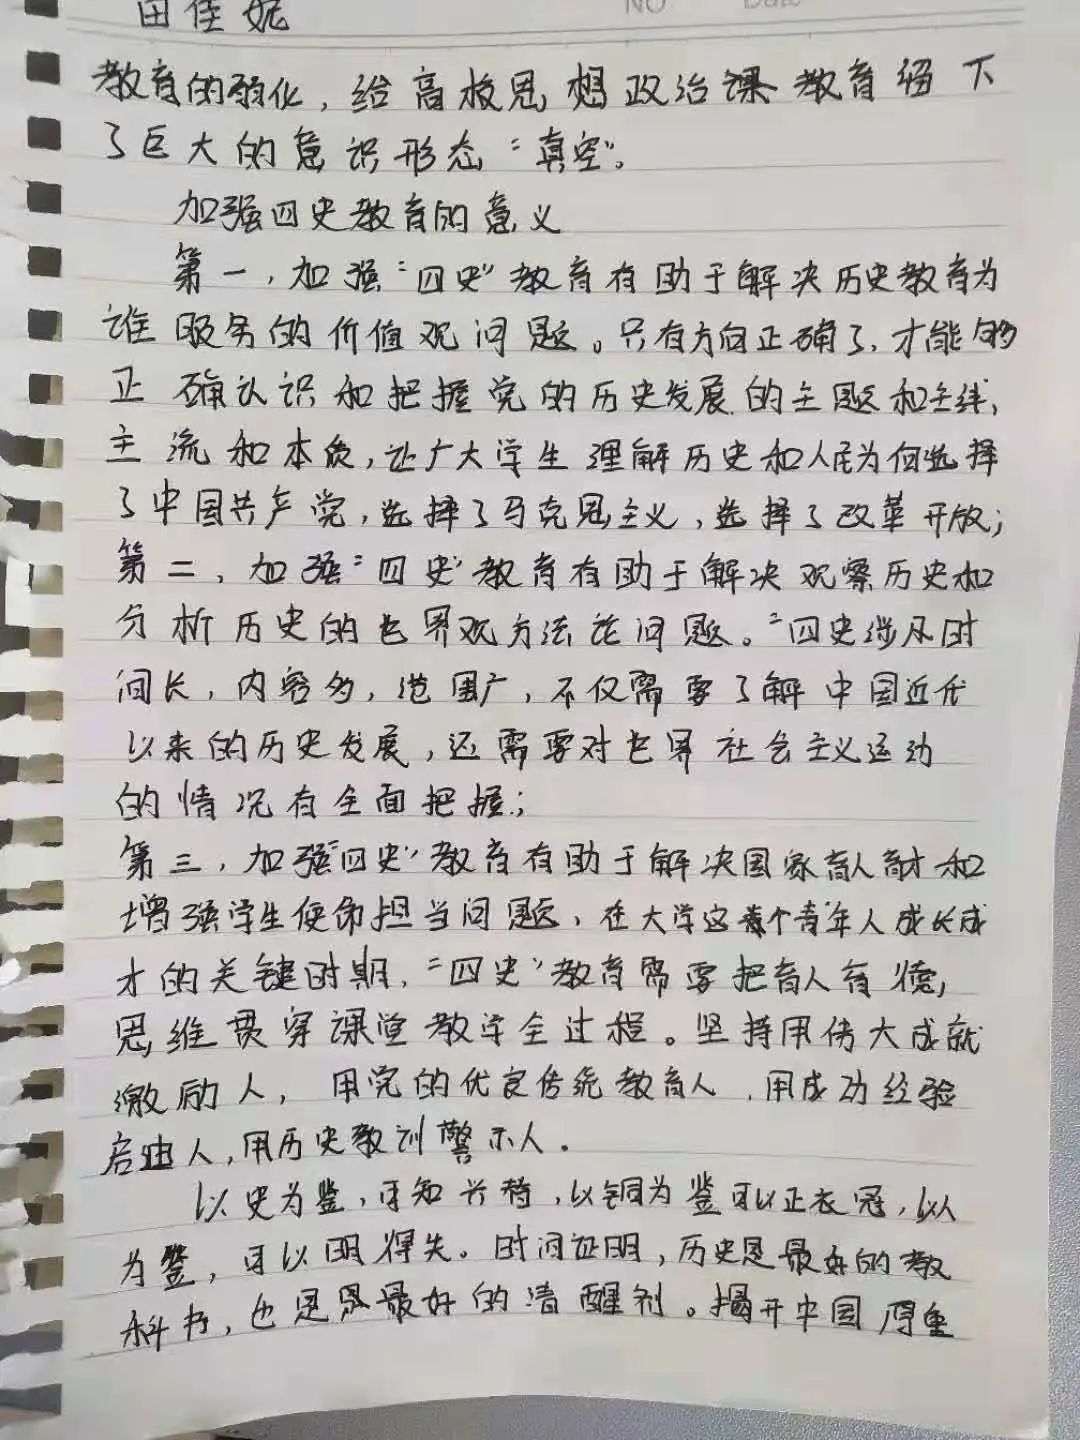 田佳妮
NO
Date
教育的弱化，给高校思想政治课教育留下
了巨大的意识形态“真空”。
加强四史教育的意义
第一，加强“四史”教育有助于解决历史教育为
谁服务的价值观问题。只有方向正确了，才能够
正确认识和把握党的历史发展的主题和主线，
主流和本质，让广大学生理解历史和人民为何选择
了中国共产党，选择了马克思主义，选择了改革开放；
第二，加强“四史”教育有助于解决观察历史和
分析历史的世界观方法论问题。“四史涉及时
间长，内容多，范围广，不仅需要了解中国近代
以来的历史发展，还需要对世界社会主义运动
的情况有全面把握；
第三，加强“四史”教育有助于解决国家育人育才和
增强学生使命担当问题，在大学这个青年人成长成
才的关键时期，“四史”教育需要把育人育德，
思维贯穿课堂教学全过程。坚持用伟大成就
激励人，用党的优良传统教育人，用成功经验
启迪人，用历史教训警示人。
以史为鉴，可知兴替，以铜为鉴可以正衣冠，以人
为鉴，可以明得失。时间证明，历史是最好的教
科书，也是最好的清醒剂。揭开中国厚重